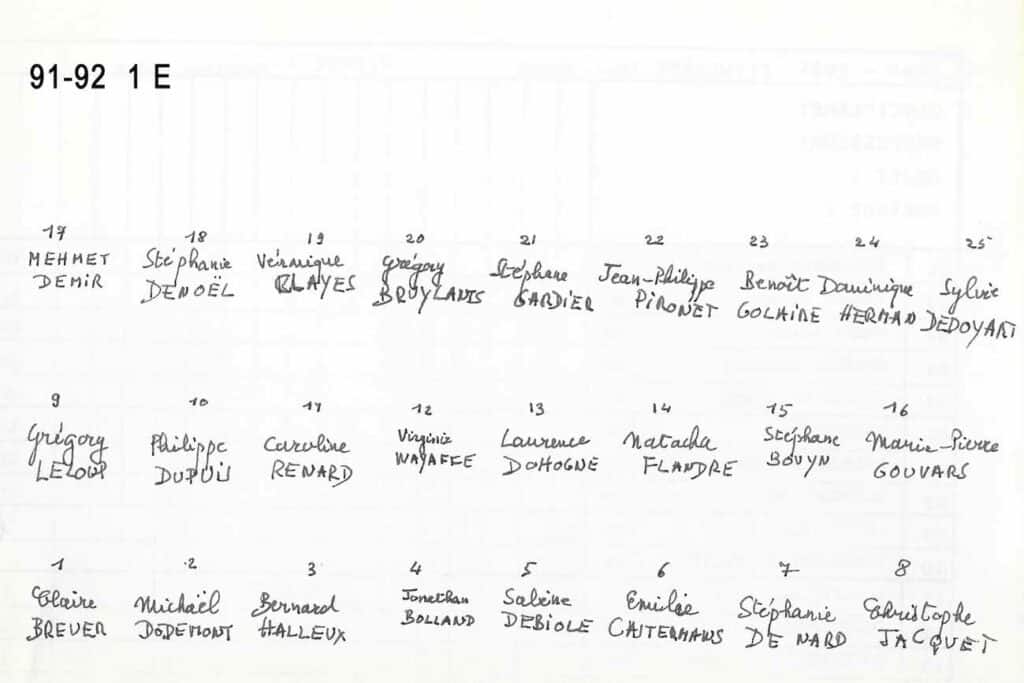 91-92 1 E
17 18 19 20 21 22 23 24 25
MEHMET Stéphanie Véronique Grégory Stéphane Jean-Philippe Benoît Dominique Sylvie
DEMIR DENOËL CLAYES BRUYLANTS GARDIER PIRONET GOLAIRE HERMAN DEDOYART
9 10 11 12 13 14 15 16
Grégory Philippe Caroline Virginie Laurence Natacha Stéphane Marie-Pierre
LELOUP DUPUIS RENARD WAYAFFE DOHOGNE FLANDRE BOVYN GOUVARS
1 2 3 4 5 6 7 8
Claire Michaël Bernard Jonathan Sabine Emilie Stéphanie Christophe
BREUER DODEMONT HALLEUX BOLLAND DEBIOLE DE NARD JACQUET